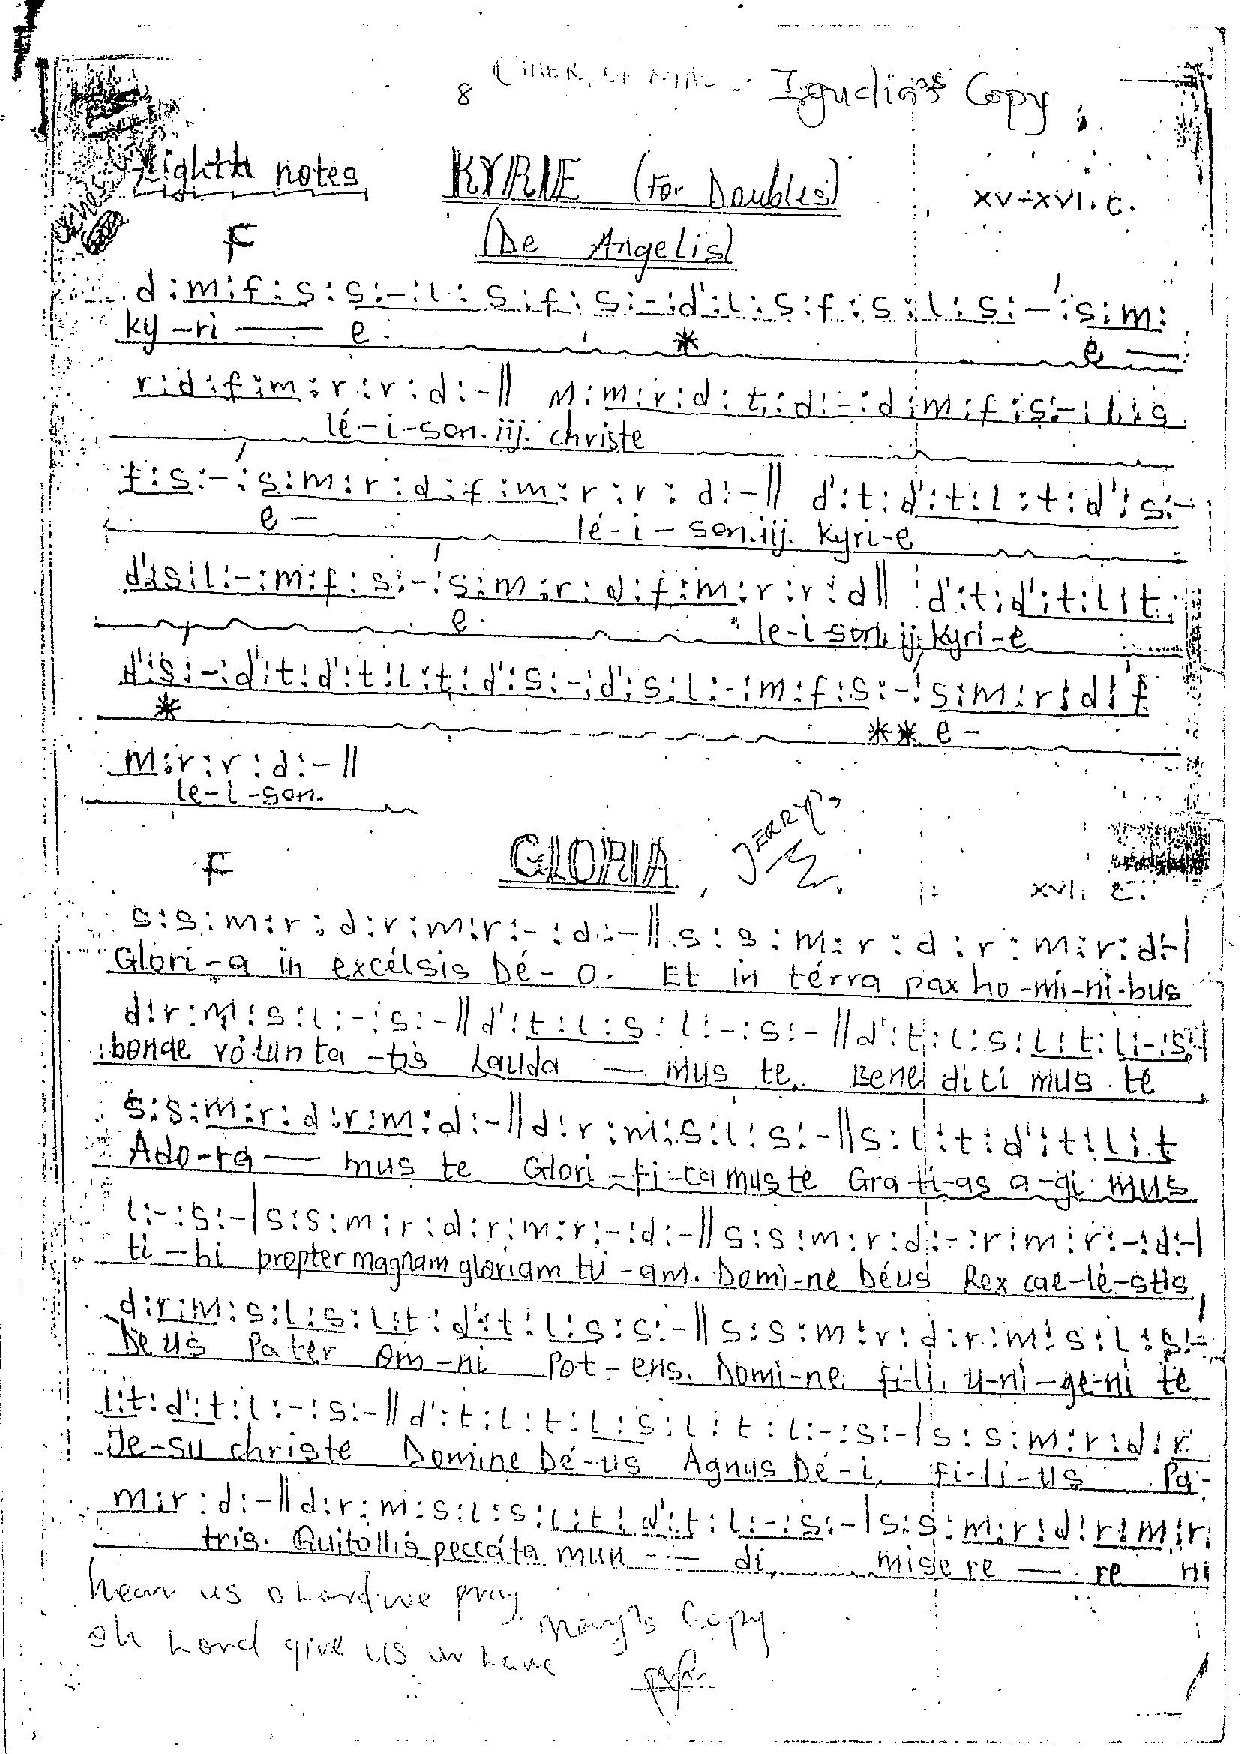 8 Igudia's Copy
Eighth notes KYRIE (For Doubles) XV-XVI. C.
F (De Angelis)
d:m:f:s:s:-:l:s:f:s:-:d':l:s:f:s:l:s:-':s:m:
Ky-ri — e. * e —
r:d:f:m:r:r:d:-|| m:m:r:d:t,:d:-:d:m:f:s:-:l:s
lé-i-son.iij. christe
f:s:-':s:m:r:d:f:m:r:r:d:-|| d':t:d':t:l:t:d':s:-
e- lé-i-son.iij. Kyri-e
d':s:l:-:m:f:s:-':s:m:r:d:f:m:r:r:d|| d':t:d':t:l:t:
e le-i-son.ij. Kyri-e
d':s:-:d':t:d':t:l:t:d':s:-:d':s:l:-:m:f:s:-':s:m:r:d:f
* ** e-
m:r:r:d:-||
le-i-son.
F GLORIA JERRY'S XVI. C.
s:s:m:r:d:r:m:r:-:d:-|| s:s:m:r:d:r:m:r:d:-|
Glori-a in excélsis Dé-o. Et in térra pax ho-mi-ni-bus
d:r:m:s:l:-:s:-|| d':t:l:s:l:-:s:-|| d':t:l:s:l:t:l:-:s:|
bonae volunta-tis Lauda — mus te. Bene diti mus te
s:s:m:r:d:r:m:d:-|| d:r:m:s:l:s:-|| s:l:t:d':t:l:t
Ado-ra — mus te Glori-fi-camus te Grati-as a-gi mus
l:-:s:-| s:s:m:r:d:r:m:r:-:d:-|| s:s:m:r:d:-:r:m:r:-:d:-|
ti-bi propter magnam gloriam tu-am. Domi-ne Déus Rex cae-lé-stis
d:r:m:s:l:s:l:t:d':t:l:s:s:-|| s:s:m:r:d:r:m:s:l:s:-
Deus Pater om-ni Pot-ens. Domi-ne. fi-li. u-ni-ge-ni te
l:t:d':t:l:-:s:-|| d':t:l:t:l:s:l:t:l:-:s:-| s:s:m:r:d:r
Je-su christe Domine Dé-us Agnus Dé-i, fi-li-us Pa-
m:r:d:-|| d:r:m:s:l:s:l:t:d':t:l:-:s:-| s:s:m:r:d:r:m:r:
tris. Quitollis peccáta mun — di, misere — re ni
hear us o Lord we pray
Mary's Copy
oh Lord give us